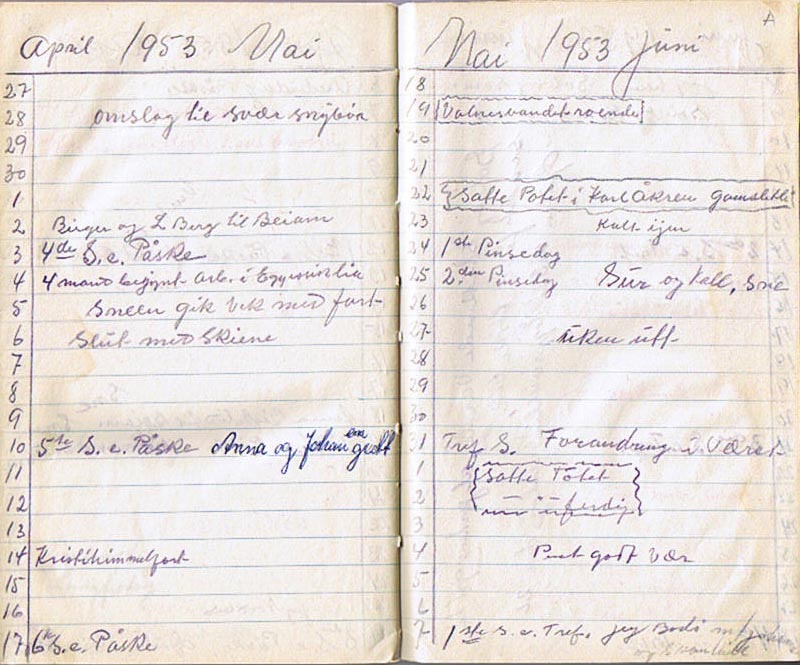 April 1953 Mai
27
28 omslag til svær snybør
29
30
1
2 Birger og L Berg til Beiarn
3 4de S. e. Påske
4 4 mand begynt arb. i
5 Sneen gik vek med fart
6 Slut med Skiene
7
8
9
10 5te S. e. Påske Anna og Johan gift
11
12
13
14 Kristihimmelfart
15
16
17 6te S. e. Påske
Mai 1953 Juni
18
19 Valnesvandet roende
20
21
22 Satte Potet i Karl Åkren
23 Kalt igjen
24 1ste Pinsedag
25 2den Pinsedag Sur og kall, Sne
26
27 uken utt
28
29
30
31 Tref S. Forandring i Været
1 Satte Potet
2 ferdig
3
4 Pent godt vær
5
6
7 1ste S. e. Tref. jeg Bodø